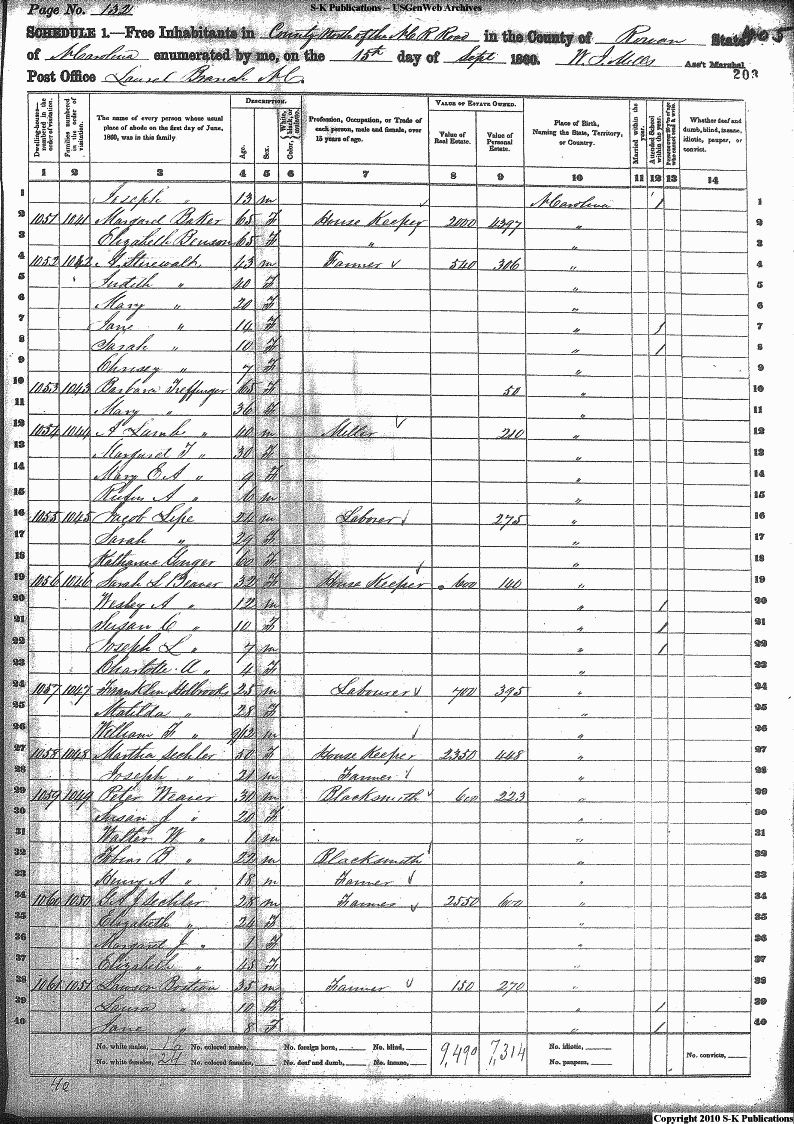 S-K Publications – USGenWeb Archives
Page No. 132
SCHEDULE 1.—Free Inhabitants in County North of the N C R Road in the County of Rowan State 405
of N Carolina enumerated by me, on the 15th day of Sept 1860. W. J. Mills Ass't Marshal
Post Office Laurel Branch N C. 203
Dwelling-houses—numbered in the order of visitation. Families numbered in the order of visitation. The name of every person whose usual place of abode on the first day of June, 1860, was in this family DESCRIPTION. Age. Sex. Color, White, black, or mulatto. Profession, Occupation, or Trade of each person, male and female, over 15 years of age. VALUE OF ESTATE OWNED. Value of Real Estate. Value of Personal Estate. Place of Birth, Naming the State, Territory, or Country. Married within the year. Attended School within the year. Persons over 20 y'rs of age who cannot read & write. Whether deaf and dumb, blind, insane, idiotic, pauper, or convict.
1 2 3 4 5 6 7 8 9 10 11 12 13 14
1 Joseph " 13 m N Carolina / 1
2 1051 1041 Margaret Baker 65 F House Keeper 2000 4397 " 2
3 Elizabeth Benson 65 F " " 3
4 1052 1042 Stirewalt 43 m Farmer 540 306 " 4
5 Judith " 40 F " 5
6 Mary " 20 F " 6
7 Jane " 14 F " / 7
8 Sarah " 10 F " / 8
9 Chrissy " 7 F " 9
10 1053 1043 Barbara Treffinger 65 F 50 " 10
11 Mary " 36 F " 11
12 1054 1044 A Lamb " 40 m Miller 210 " 12
13 Margaret F " 30 F " 13
14 Mary E A " 9 F " 14
15 Rufus A " 6 m " 15
16 1055 1045 Jacob Lipe 24 m Laborer 275 " 16
17 Sarah " 29 F " 17
18 Katharine 60 F " 18
19 1056 1046 Sarah L Beaver 32 F House Keeper 600 140 " 19
20 Wesley A " 12 m " / 20
21 Susan C " 10 F " / 21
22 Joseph L " 7 m " / 22
23 Charlotte A " 4 F " 23
24 1057 1047 Franklin Holbrooks 25 m Labourer 700 395 " 24
25 Matilda " 28 F " 25
26 William F " 9/12 m " 26
27 1058 1048 Martha Sechler 50 F House Keeper 2350 448 " 27
28 Joseph " 21 m Farmer " 28
29 1059 1049 Peter Weaver 30 m Blacksmith 600 223 " 29
30 Susan J " 20 F " 30
31 Walter W " 1 m " 31
32 Tobias B " 22 m Blacksmith " 32
33 Henry A " 18 m Farmer " 33
34 1060 1050 G A J Sechler 28 m Farmer 2550 600 " 34
35 Elizabeth " 24 F " 35
36 Margaret J " 1 F " 36
37 Elizabeth " 45 F " 37
38 1061 1051 Lawson Bostian 35 m Farmer 150 270 " 38
39 Laura " 10 F " / 39
40 Jane " 8 F " / 40
No. white males, 16 No. colored males, No. foreign born, No. blind, 9,490 7,314 No. idiotic,
No. white females, 24 No. colored females, No. deaf and dumb, No. insane, No. paupers, No. convicts,
40
Copyright 2010 S-K Publications